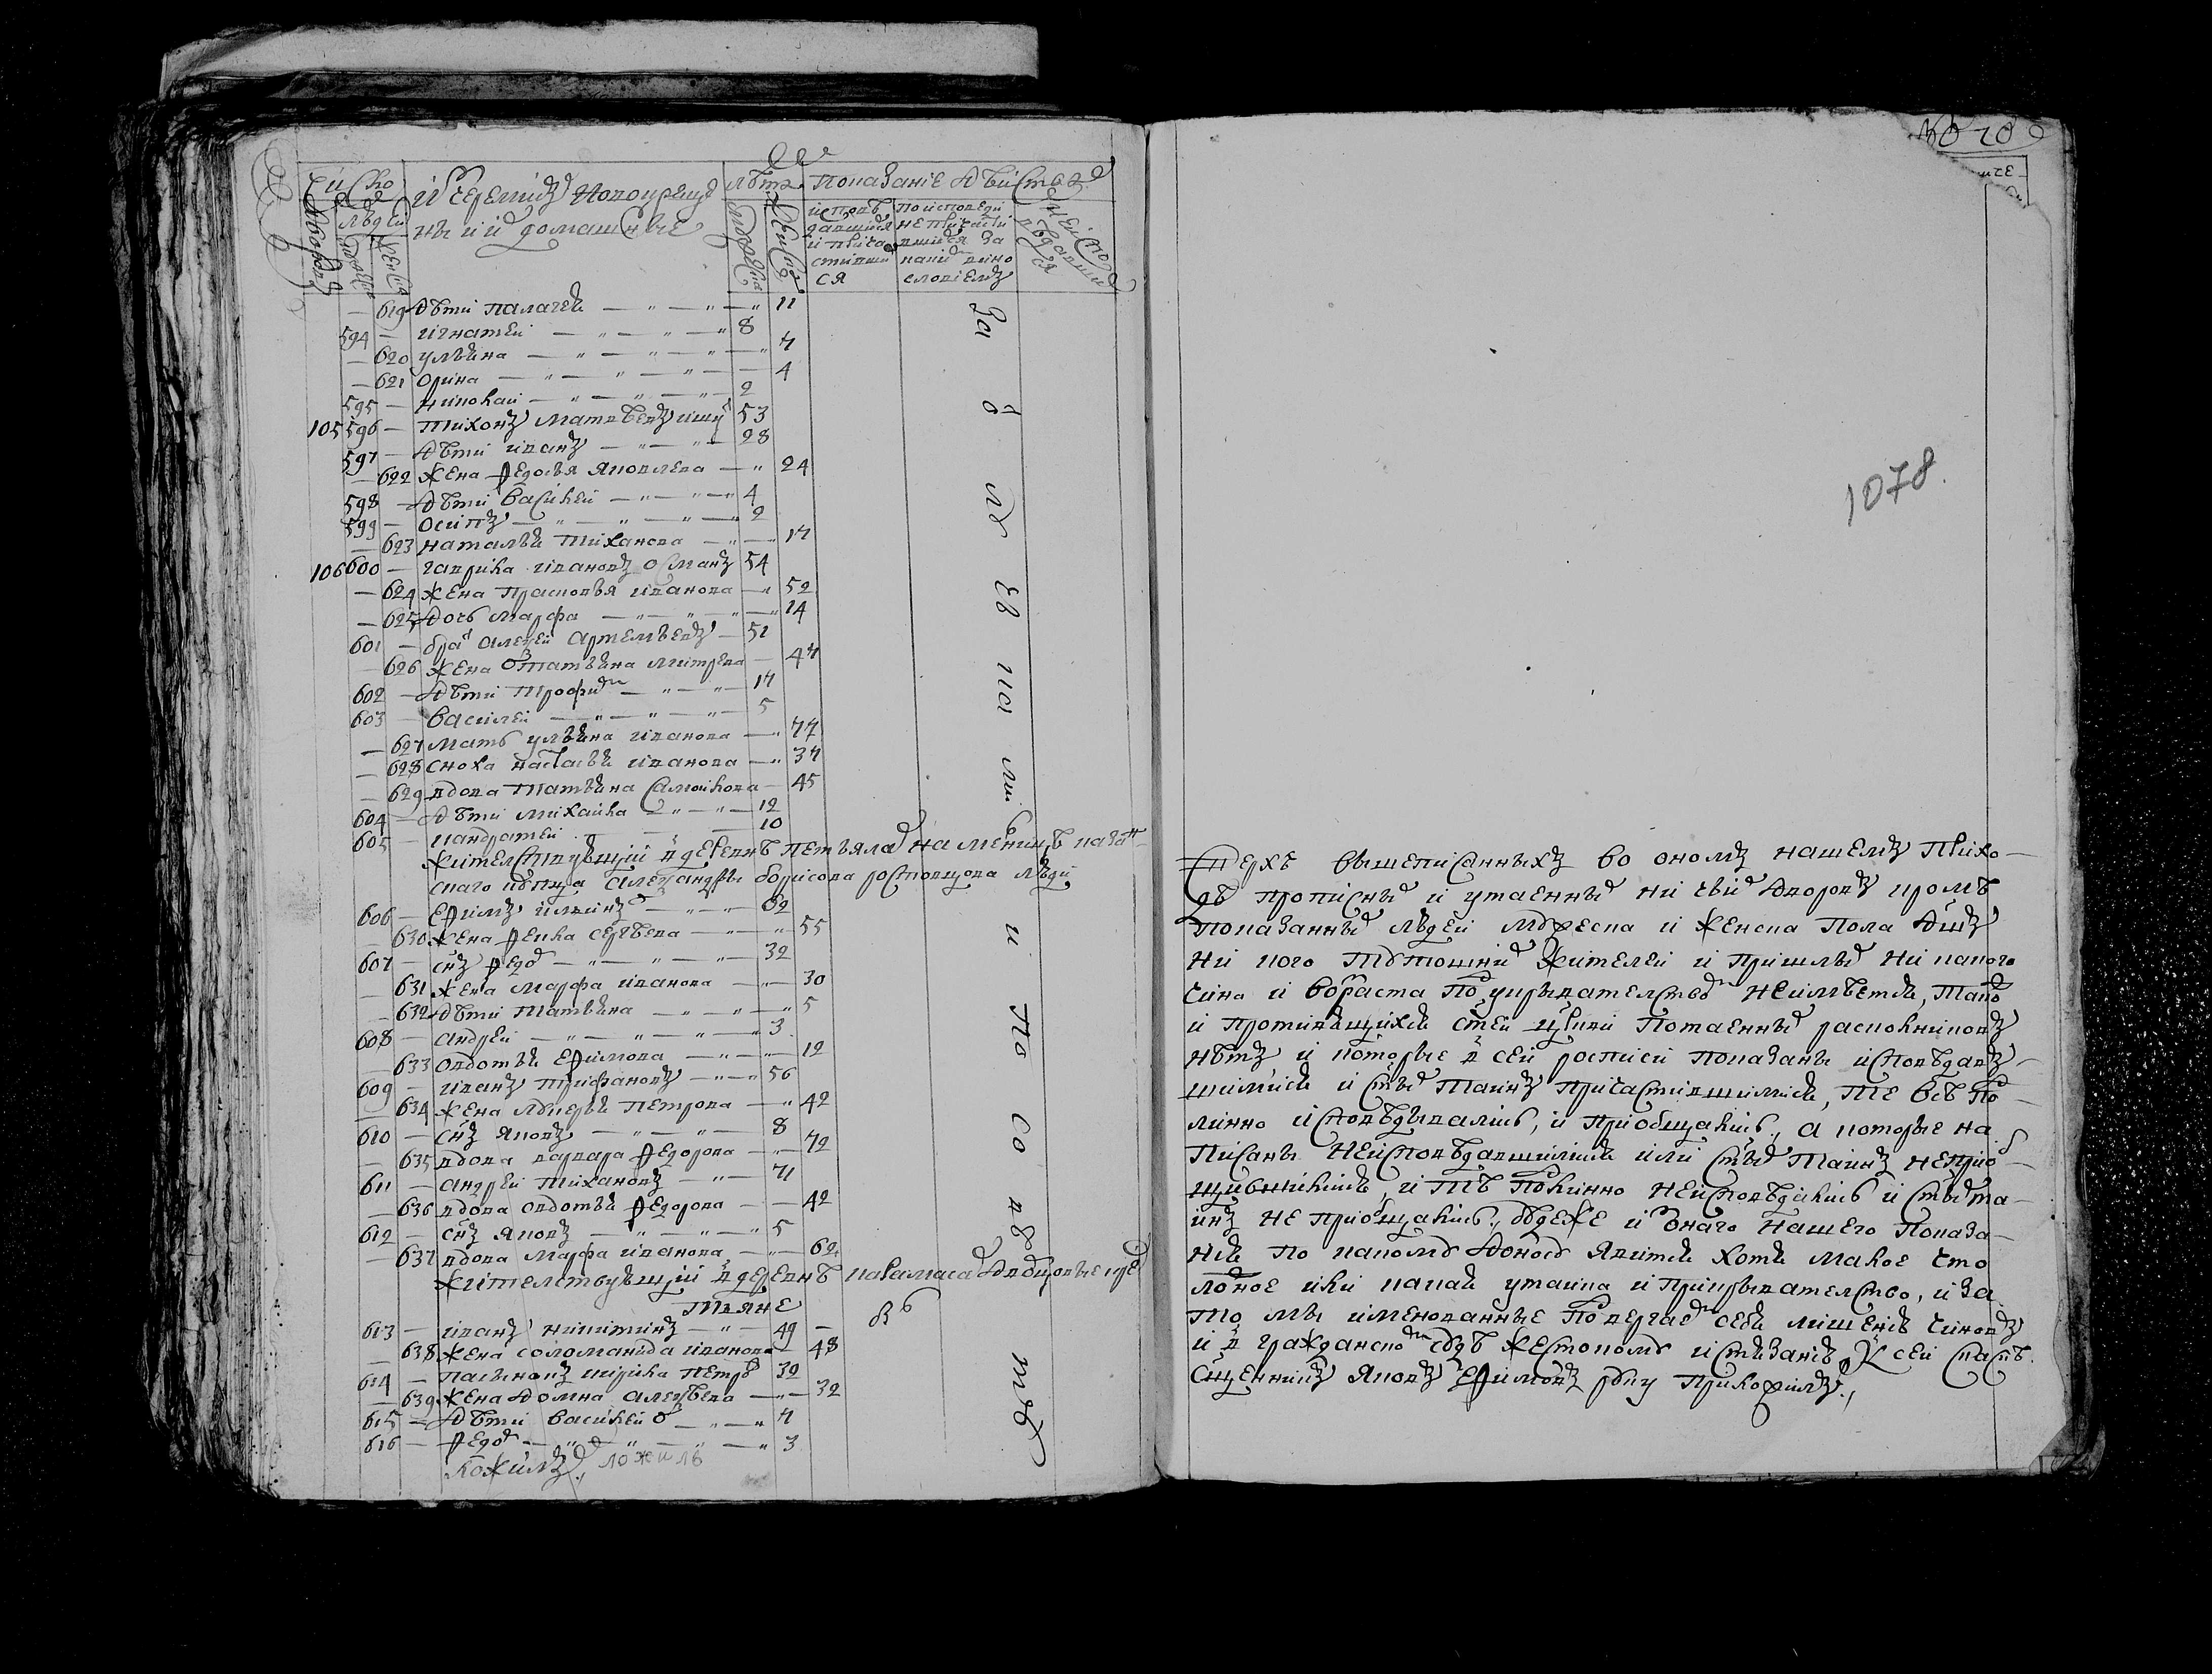 Число
людей
Дворовъ
мужеска
женска
И серемидъ новокреще
ны и ихъ домашные
лѣта
мужеска
женска
показаніе дѣйства
исповѣ
давшихся
и причас
тивши
ся
по исповеди
не причасти
вшихся за
каким вино
словіемъ
неисповѣдавшихся
— 619 дѣти палагея — 11
594 — игнатей — 8
— 620 ульяна — 7
— 621 орина — 4
595 — николай — 2
105 596 — тихонъ матвѣевъ 53
597 — дѣти иванъ — 28
— 622 жена федосья яковлева — 24
598 — дѣти василей — 4
599 — осипъ — 2
— 623 наталья тиханова — 17
106 600 — гаврила ивановъ 54
— 624 жена прасковья иванова — 52
— 625 дочь марфа — 14
601 — бра алеѯей артемьевъ — 51
— 626 жена ево татьяна митрева — 47
602 — дѣти трофим — 17
603 — василей — 5
— 627 мать ульяна иванова — 77
— 628 сноха настасья иванова — 37
— 629 вдова татьяна самойлова — 45
604 — дѣти михайла — 12
605 — кандратей — 10
жителствующий в деревнѣ петьялах на меншѣ каза
скаго купца алеѯандры борисова росторщова люди
606 — ефимъ ильинъ — 62
— 630 жена фекла сергѣева — 55
607 — снъ федо — 32
— 631 жена марфа иванова — 30
— 632 дѣти татьяна — 5
608 — андрей — 3
— 633 овдотья ефимова — 12
609 — иванъ трифановъ — 56
— 634 жена лукерья петрова — 42
610 — снъ яковъ — 8
— 635 вдова варвара федорова — 72
611 — андрей тихановъ — 71
— 636 вдова овдотья федорова — 42
612 — снъ яковъ — 5
— 637 вдова марфа иванова — 62
жителствующий в деревнѣ кавамаса
тьяне
613 — иванъ никитинъ — 49
— 638 жена соломанида иванова — 48
614 — пасынокъ кирила петро 32
— 639 жена домна алеѯѣева — 32
615 — дѣти василей — 7
616 — федо — 3
За болезнями и по сиротству
1078.
Сверхъ вышеписанныхъ во ономъ нашемъ прихо
дѣ прописных и утаенных ни чьих дворовъ кромѣ
показанных людей мужеска и женска пола душъ
ни кого тутошних жителей и пришлых ни какого
чина и возраста по укрывателством неимѣется, тако
и противящихся стей цркви потаенных расколниковъ
нѣтъ и которые в сей росписи показаны исповѣдавъ
шимися и стых таинъ причастившимися, те всѣ по
линно исповѣдывались, и приобщались, а которые на
писаны неисповѣдавшимися или стых таинъ неприоб
щившимися, и тѣ подлинно неисповѣдались и стых та
инъ не приобщались, будеже из онаго нашего показа
нія по какому доносу явится хотя малое что
ложное или какая утаика и прикрывателство, и за
то мы именованные подвергаем себя лишенію чиновъ
и в гражданском судѣ жестокому истязанію, К сей
сщенникъ яковъ ефимовъ руку приложилъ